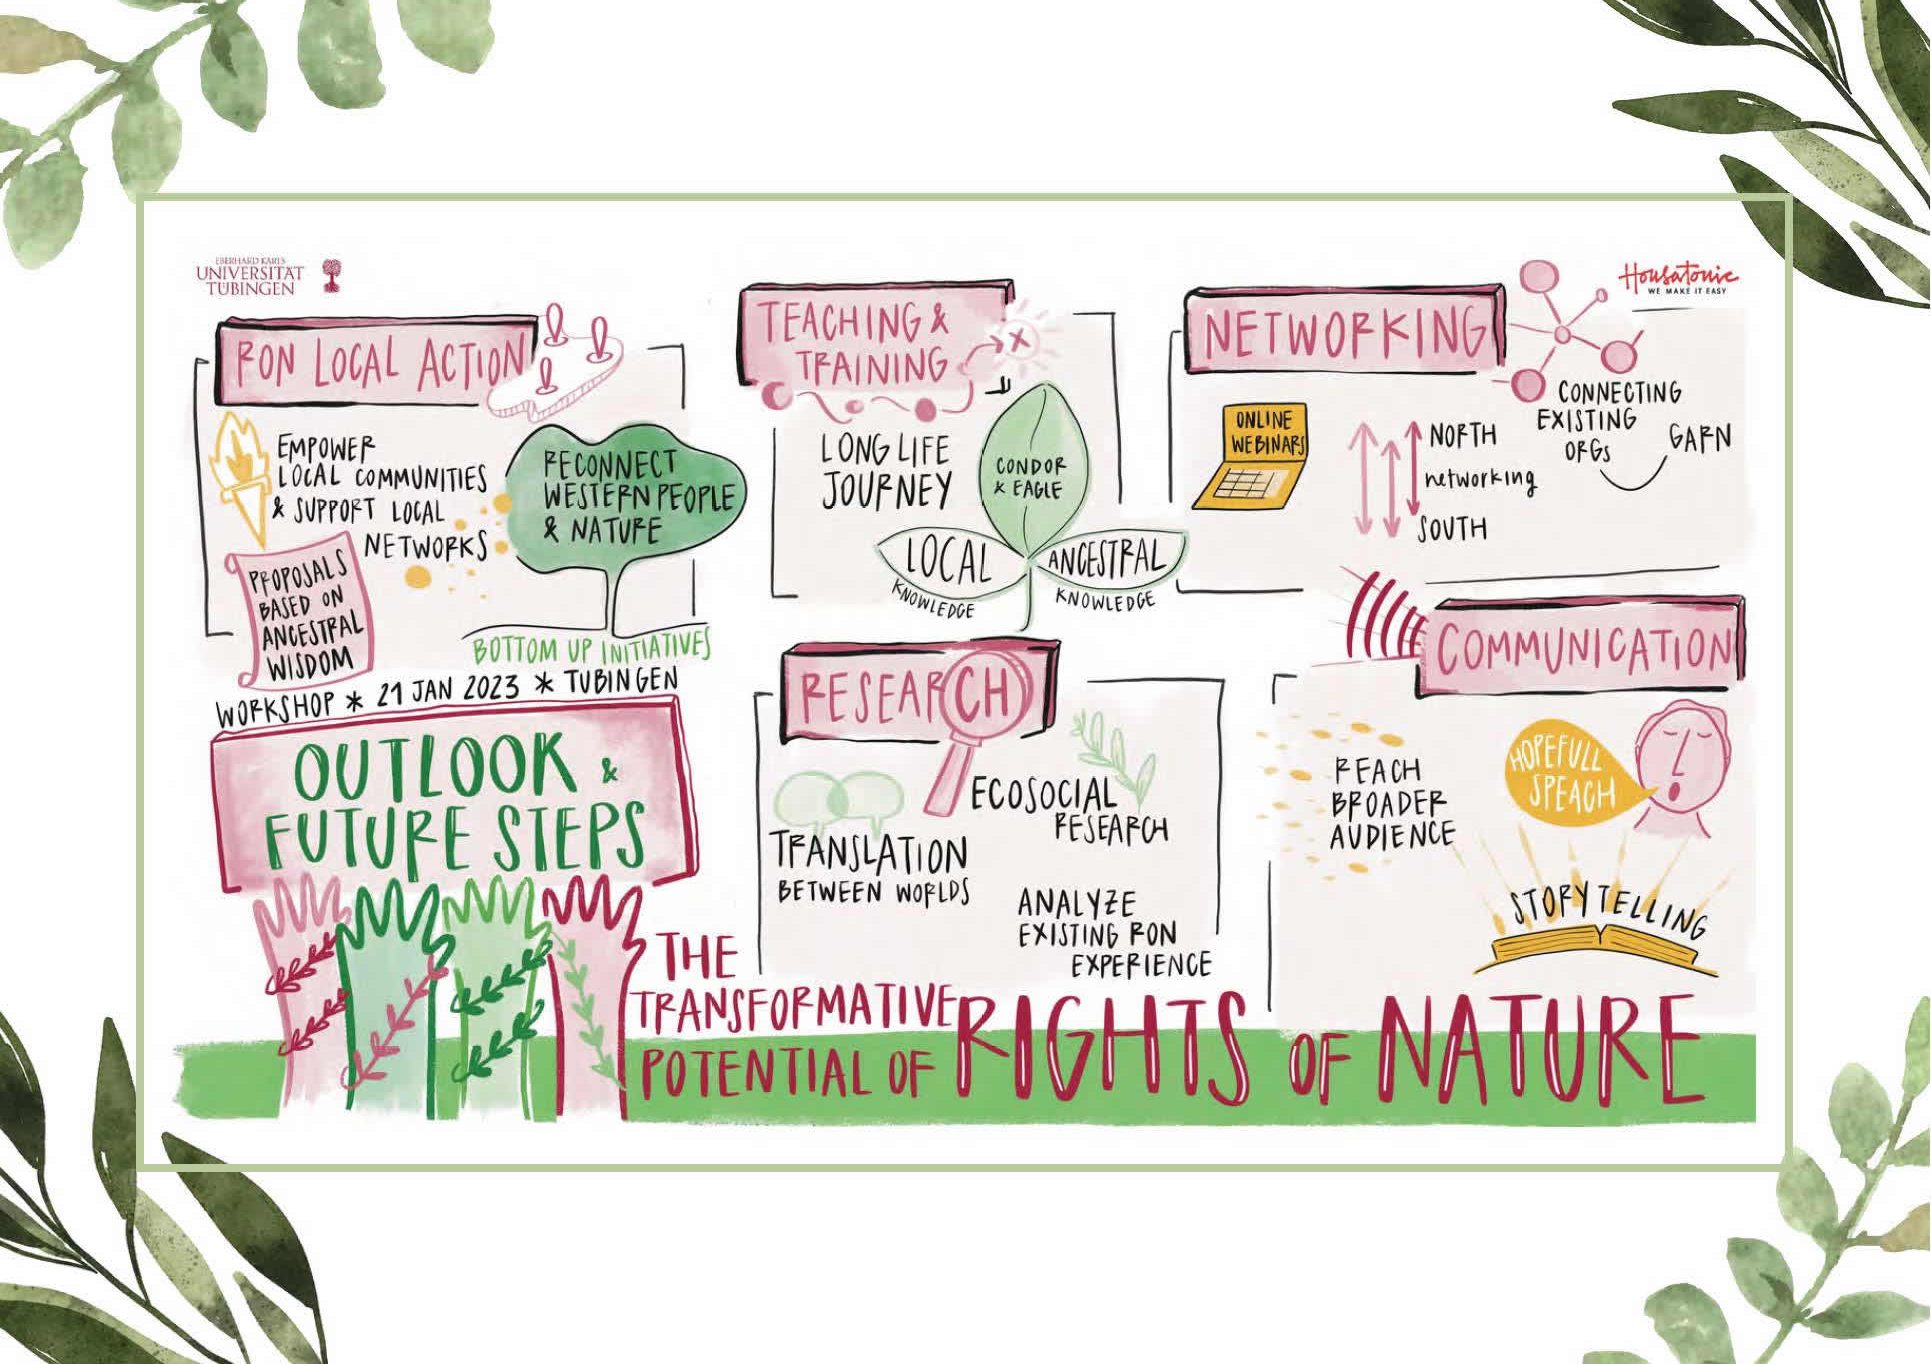 EBERHARD KARLS
UNIVERSITÄT
TÜBINGEN
RON LOCAL ACTION
EMPOWER
LOCAL COMMUNITIES
& SUPPORT LOCAL
NETWORKS
PROPOSALS
BASED ON
ANCESTRAL
WISDOM
RECONNECT
WESTERN PEOPLE
& NATURE
BOTTOM UP INITIATIVES
WORKSHOP * 21 JAN 2023 * TUBINGEN
OUTLOOK &
FUTURE STEPS
TEACHING &
TRAINING
X
LONG LIFE
JOURNEY
CONDOR
& EAGLE
LOCAL
KNOWLEDGE
ANCESTRAL
KNOWLEDGE
RESEARCH
ECOSOCIAL
RESEARCH
TRANSLATION
BETWEEN WORLDS
ANALYZE
EXISTING RON
EXPERIENCE
NETWORKING
Housatonic
WE MAKE IT EASY
ONLINE
WEBINARS
NORTH
networking
SOUTH
CONNECTING
EXISTING
ORGs
GARN
COMMUNICATION
REACH
BROADER
AUDIENCE
HOPEFULL
SPEACH
STORYTELLING
THE
TRANSFORMATIVE
POTENTIAL OF RIGHTS OF NATURE